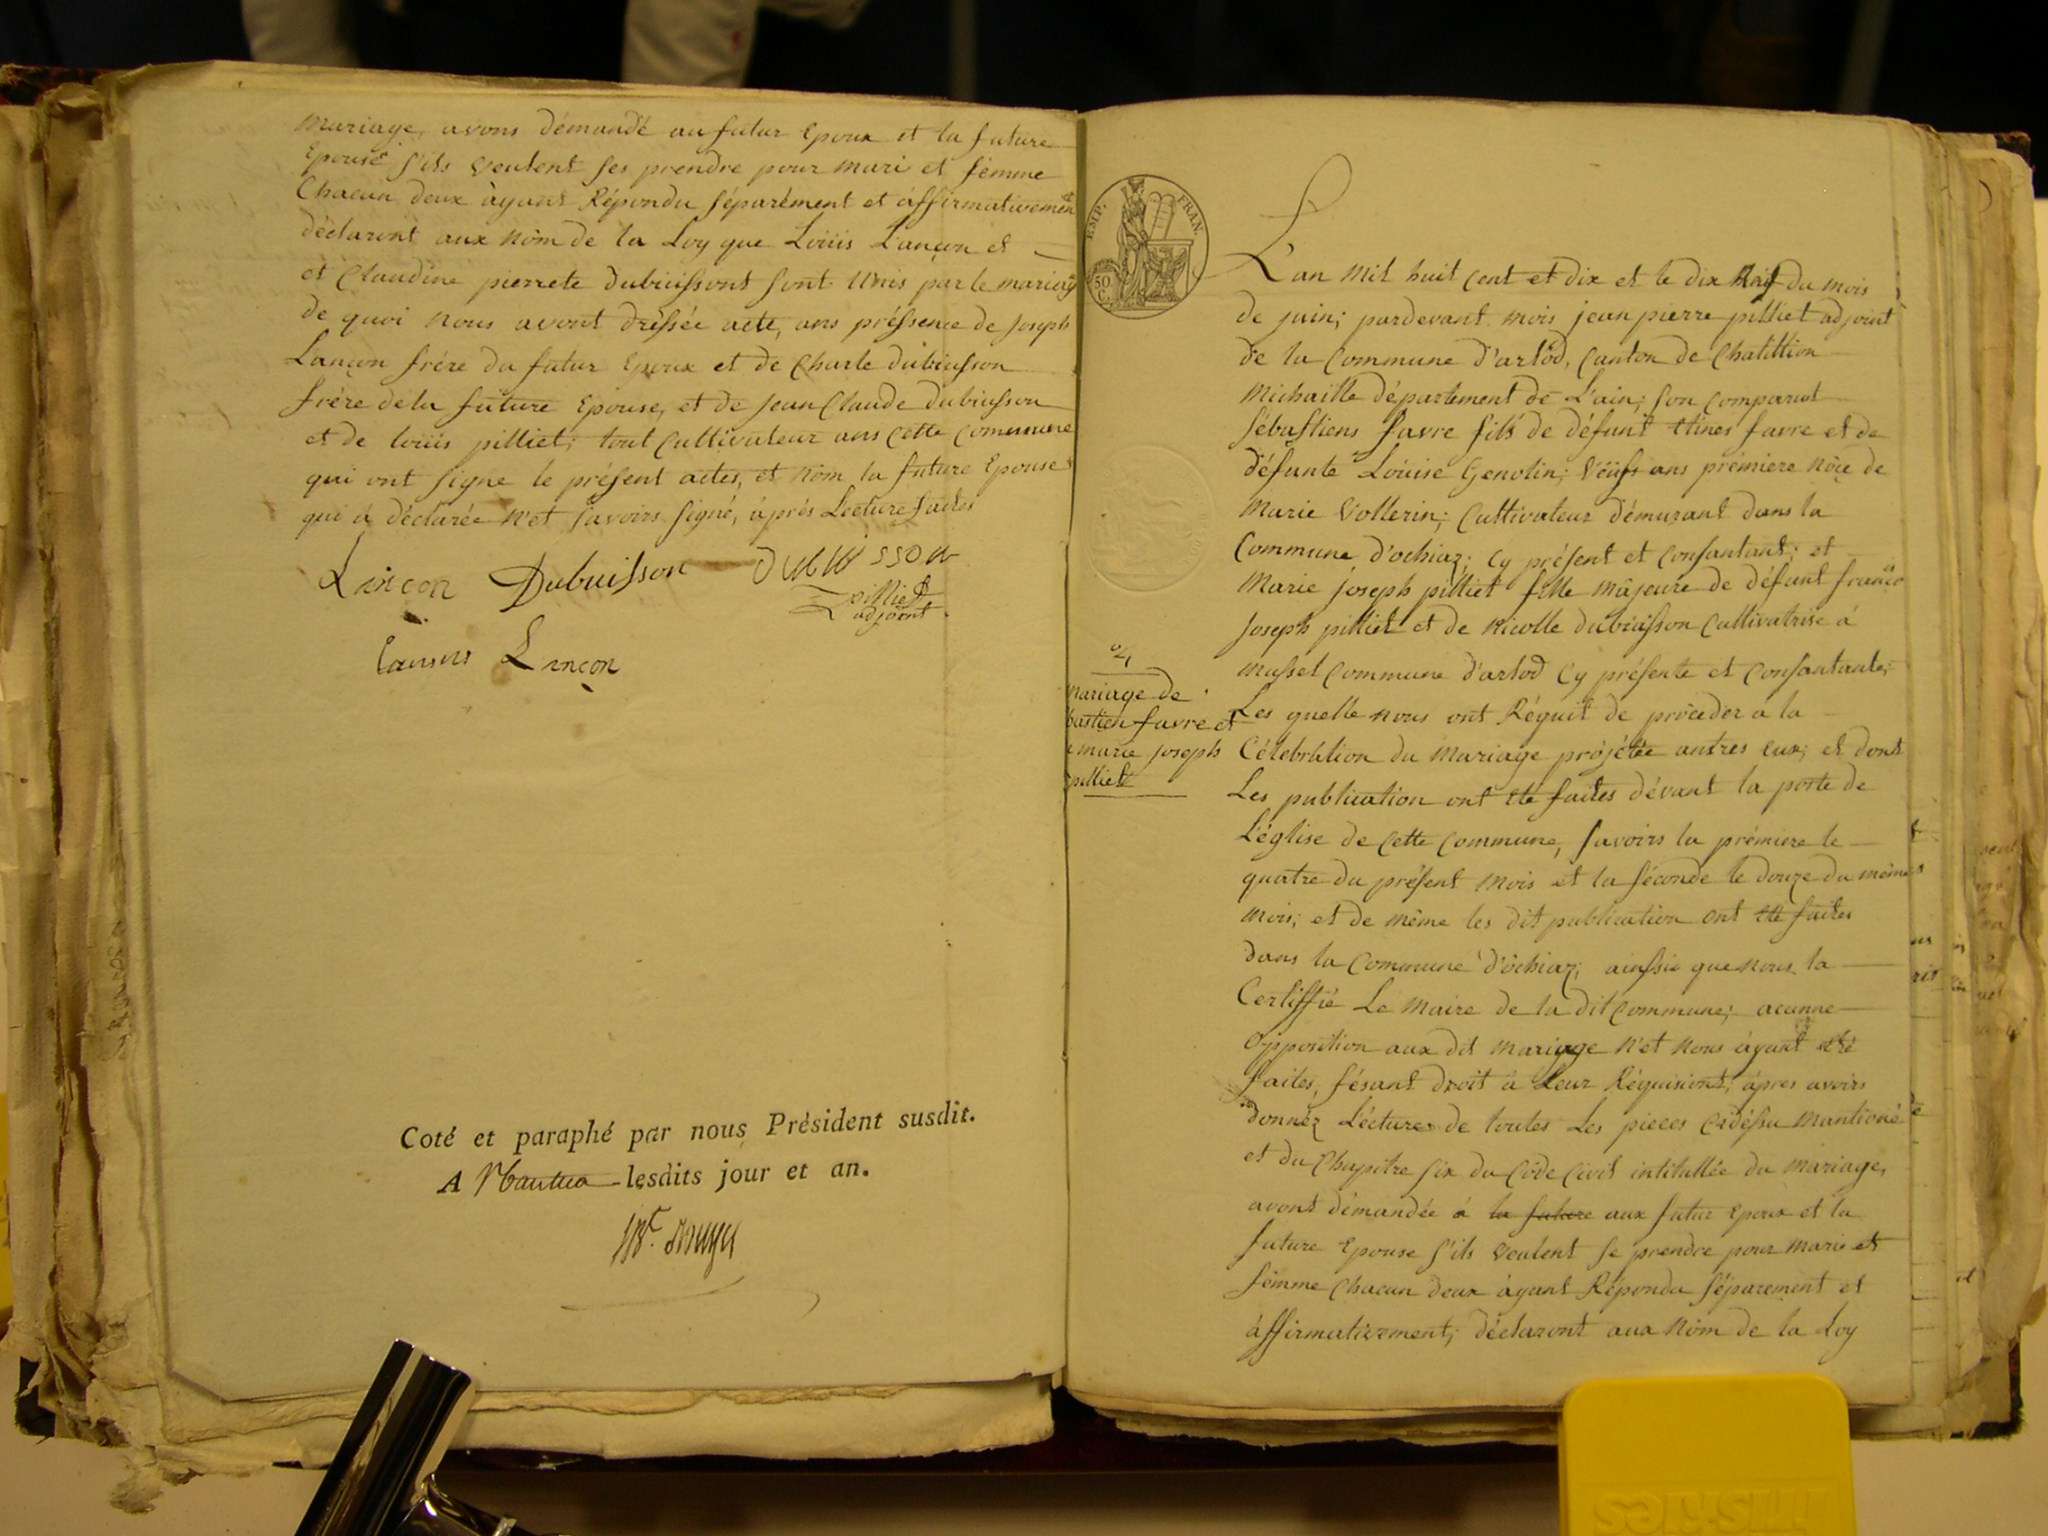 mariage, avons démandé au futur Epoux et la future
Epouse s'ils veulent ses prendre pour mari et fémme
Chacun deux àyant Répondu séparément et áffirmativement
déclaront aux nôm de la Loy que Loüis Lançon et
et Claudine pierrete dubuissont sont Unis par le mariag
de quoi nous avont dréssée acte, ans préssence de Joseph
Lançon frére du futur Epoux et de Charle dubuisson
frére dela future Epouse, et de jean Claude dubuisson
et de loüis pilliet; tout Cultivateur ans Cette Commune
qui ont signe le présent actes, et nôm la future Epouse
qui á déclarée n'et savoirs signé, áprés Lecture faites
Lancon Dubuisson dubuisson
pilliet
adjoint
Lancon
Coté et paraphé par nous Président susdit.
A Nantua lesdits jour et an.
ESIP. FRAN.
50
C.
L'an mil huit Cent et dix et le dix du mois
de juin; pardevant mois jean pierre pilliet adjoint
de la Commune d'arlod, Canton de Chatilltion
Michaille département de L'ain; son Comparut
sébastiens favre fils de défunt favre et de
défunte Loüise Genolin; Vëufs ans prémiere nôce de
Marie Vollerin; Cultivateur démurant dans la
Commune d'ochiaz; Cy présent et Consantant; et
Marie joseph pilliet fille mâjeure de défunt franço
Joseph pilliet et de Nicolle dubuisson Cultivatrise á
Musset Commune d'arlod Cy présente et Consantante;
Les quelle nous ont Réquit de proceder a la
Célebration du mariage projétée antres eux; et dont
Les publication ont été faites dévant la porte de
L'église de Cette Commune, savoirs la prémiere le
quatre du présent mois et la séconde le douze du même
mois; et de même les dit publication ont été faites
dans la Commune d'ôchiaz; ainssie que nous la
Certiffié Le Maire de la dit Commune; acunne
Opposition aux dit mariage n'et nous áyant été
faites, fésant droit á Leur Réquisiont, ápres avoirs
donnéz Léctures de toutes Les pieces Cidéssu mantioné
et du Chapitre six du Code Civil intitullée du mariage,
avont démandée á la future aux futur Epoux et la
future Epouse s'ils veulent se prendre pour mari et
fémme Chacun deux áyant Répondu séparement et
áffirmativement; déclaront aux nôm de la Loy
mariage de
bastien favre et
marie joseph
pilliet